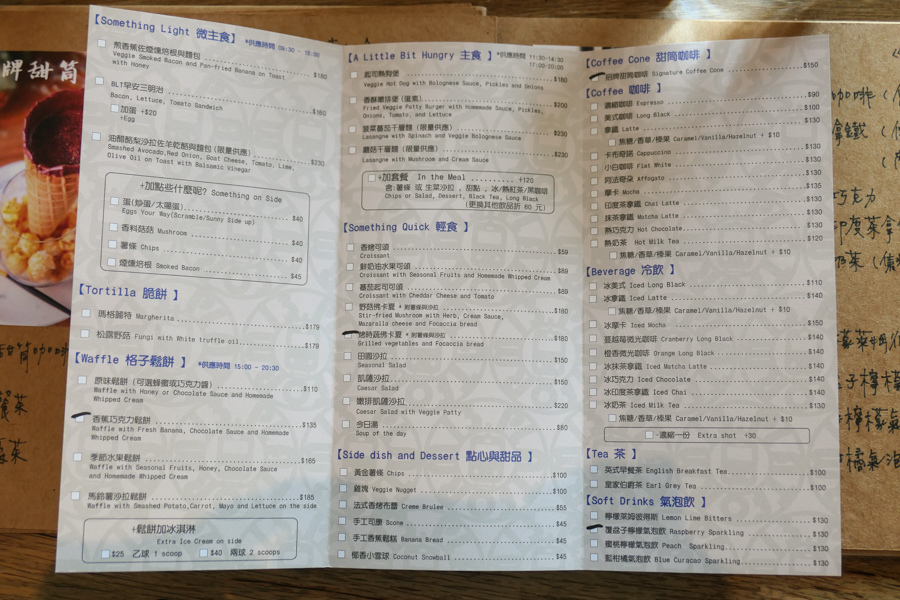 牌甜筒
【Something Light 微主食】 *供應時間 09:30 - 18:30
煎香蕉佐煙燻培根與麵包
Veggie Smoked Bacon and Pan-fried Banana on Toast with Honey $180
BLT早安三明治
Bacon, Lettuce, Tomato Sandwich $160
加蛋 +$20
+Egg
油醋酪梨沙拉佐羊乾酪與麵包(限量供應)
Smashed Avocado,Red Onion, Goat Cheese, Tomato, Lime, $230
Olive Oil on Toast with Balsamic Vinegar
+加點些什麼呢? Something on Side
蛋(炒蛋/太陽蛋)
Eggs Your Way(Scramble/Sunny Side up) $40
香料菇菇 Mushroom $40
薯條 Chips $40
煙燻培根 Smoked Bacon $45
【Tortilla 脆餅 】
瑪格麗特 Margherita $179
松露野菇 Fungi with White truffle oil $179
【Waffle 格子鬆餅 】 *供應時間 15:00 - 20:30
原味鬆餅(可選蜂蜜或巧克力醬) $110
Waffle with Honey or Chocolate Sauce and Homemade
Whipped Cream
香蕉巧克力鬆餅 $135
Waffle with Fresh Banana, Chocolate Sauce and Homemade
Whipped Cream
季節水果鬆餅 $165
Waffle with Seasonal Fruits, Honey, Chocolate Sauce
and Homemade Whipped Cream
馬鈴薯沙拉鬆餅 $185
Waffle with Smashed Potato,Carrot, Mayo and Lettuce on the side
+鬆餅加冰淇淋
Extra Ice Cream on side
$25 乙球 1 scoop $40 兩球 2 scoops
【A Little Bit Hungry 主食 】 *供應時間 11:30-14:30
17:00-20:00
起司熱狗堡 $180
Veggie Hot Dog with Bolognese Sauce, Pickles and Onions
香酥嫩排堡(蛋素) $200
Fried Veggie Patty Burger with Homemade Sauce, Pickles,
Onions, Tomato, and Lettuce
菠菜番茄千層麵(限量供應) $230
Lasangne with Spinach and Veggie Bolognese Sauce
蘑菇千層麵(限量供應) $230
Lasangne with Mushroom and Cream Sauce
+加套餐 In the Meal +120
含:薯條 或 生菜沙拉 , 甜點 , 冰/熱紅茶/黑咖啡
Chips or Salad, Dessert, Black Tea, Long Black
(更換其他飲品折 60 元)
【Something Quick 輕食 】
香烤可頌
Croissant $59
鮮奶油水果可頌 $89
Croissant with Seasonal Fruits and Homemade Whipped Cream
蕃茄起司可頌 $89
Croissant with Cheddar Cheese and Tomato
野菇佛卡夏 * 附薯條與沙拉 $180
Stir-fried Mushroom with Herb, Cream Sauce,
Mazaralla cheese and Focaccia bread
烤時蔬佛卡夏 * 附薯條與沙拉 $180
Grilled vegetables and Focaccia bread
田園沙拉 $150
Seasonal Salad
凱薩沙拉 $150
Caesar Salad
嫩排凱薩沙拉 $220
Caesar Salad with Veggie Patty
今日湯 $80
Soup of the day
【Side dish and Dessert 點心與甜品 】
黃金薯條 Chips $100
雞塊 Veggie Nugget $100
法式香烤布蕾 Creme Brulee $55
手工司康 Scone $45
手工香蕉鬆糕 Banana Bread $45
椰香小雪球 Coconut Snowball $45
【Coffee Cone 甜筒咖啡 】
招牌甜筒咖啡 Signature Coffee Cone $150
【Coffee 咖啡 】
濃縮咖啡 Espresso $90
美式咖啡 Long Black $100
拿鐵 Latte $130
焦糖/香草/榛果 Caramel/Vanilla/Hazelnut + $10
卡布奇諾 Cappuccino $130
小白咖啡 Flat White $130
阿法奇朵 Affogato $130
摩卡 Mocha $135
印度茶拿鐵 Chai Latte $130
抹茶拿鐵 Matcha Latte $130
熱巧克力 Hot Chocolate $130
熱奶茶 Hot Milk Tea $120
焦糖/香草/榛果 Caramel/Vanilla/Hazelnut + $10
【Beverage 冷飲 】
冰美式 Iced Long Black $110
冰拿鐵 Iced Latte $140
焦糖/香草/榛果 Caramel/Vanilla/Hazelnut + $10
冰摩卡 Iced Mocha $150
蔓越莓微光咖啡 Cranberry Long Black $140
橙香微光咖啡 Orange Long Black $140
冰抹茶拿鐵 Iced Matcha Latte $140
冰巧克力 Iced Chocolate $140
冰印度茶拿鐵 Iced Chai $140
冰奶茶 Iced Milk Tea $130
焦糖/香草/榛果 Caramel/Vanilla/Hazelnut + $10
+濃縮一份 Extra shot +30
【Tea 茶 】
英式早餐茶 English Breakfast Tea $100
皇家伯爵茶 Earl Grey Tea $100
【Soft Drinks 氣泡飲 】
檸檬萊姆彼得斯 Lemon Lime Bitters $130
覆盆子檸檬氣泡飲 Raspberry Sparkling $130
蜜桃檸檬氣泡飲 Peach Sparkling $130
藍柑橘氣泡飲 Blue Curacao Sparkling $130